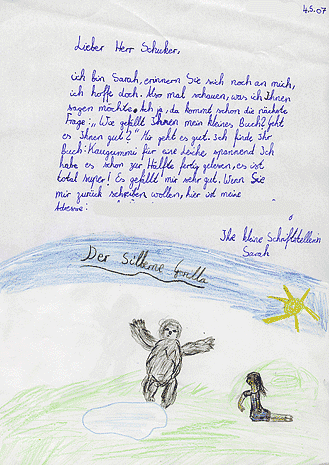 4.5.07
Lieber Herr Schuker,
ich bin Sarah, erinnern Sie sich noch an mich,
ich hoffe doch. Also mal schauen, was ich Ihnen
sagen möchte. Ach ja, da kommt schon die nächste
Frage: „Wie gefällt Ihnen mein kleines Buch? Geht
es Ihnen gut?" Mir geht es gut. Ich finde Ihr
Buch: Kaugummi für eine Leiche spannend Ich
habe es schon zur Hälfte fertig gelesen, es ist
total super! Es gefällt mir sehr gut. Wenn Sie
mir zurück schreiben wollen, hier ist meine
Adresse:
Ihre kleine Schriftstellerin
Sarah
Der Silberne Gorilla